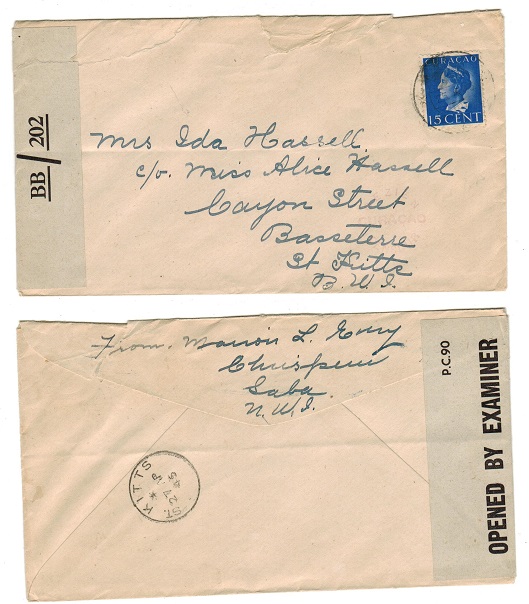 BB/202
CURAÇAO
15 CENT
Mrs Ida Hassell
c/o. Miss Alice Hassell
Cayon Street
Basseterre
St Kitts
B.W.I.
CURACAO
From. L.
Saba.
N.W.I.
ST. KITTS
P.C.90
OPENED BY EXAMINER